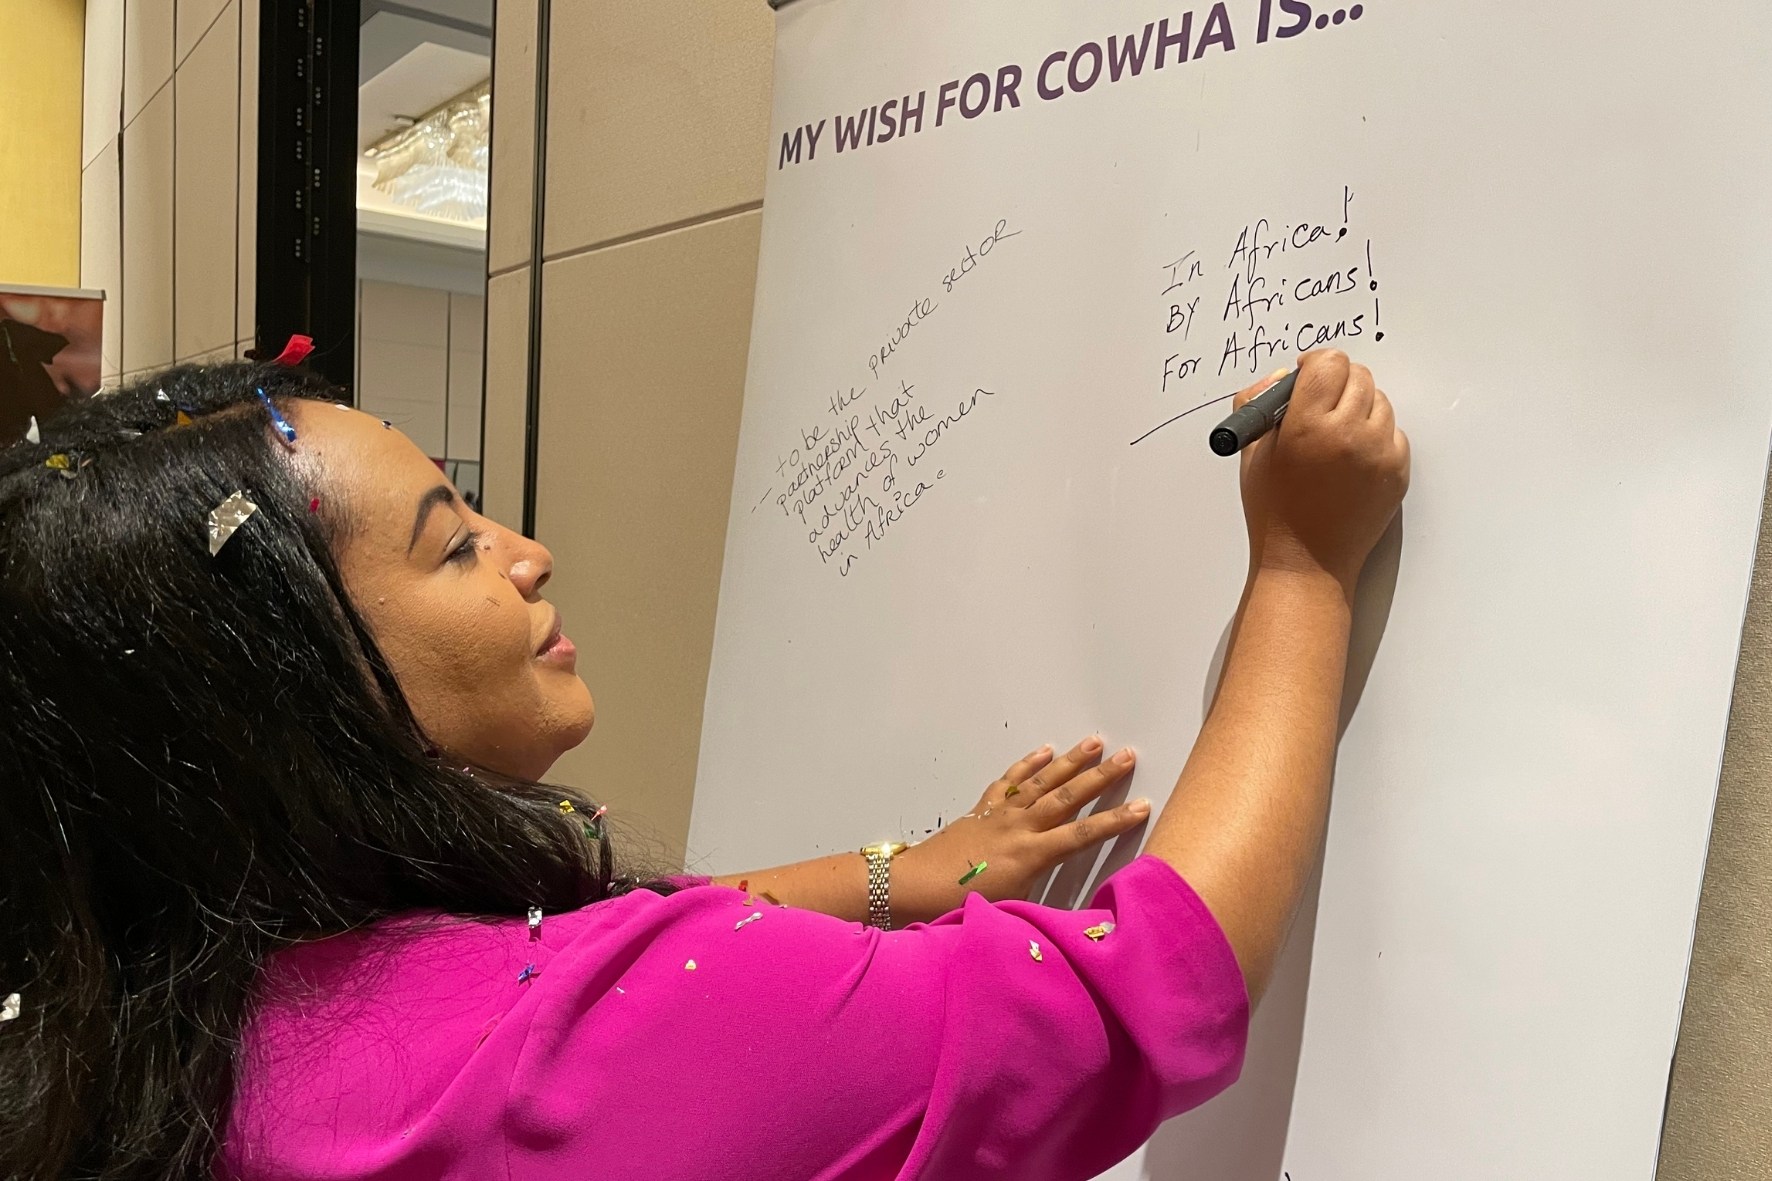 MY WISH FOR COWHA IS...
- to be the private sector
partnership
platform that
advances the
health of women
in Africa.
In Africa!
BY Africans!
For Africans!